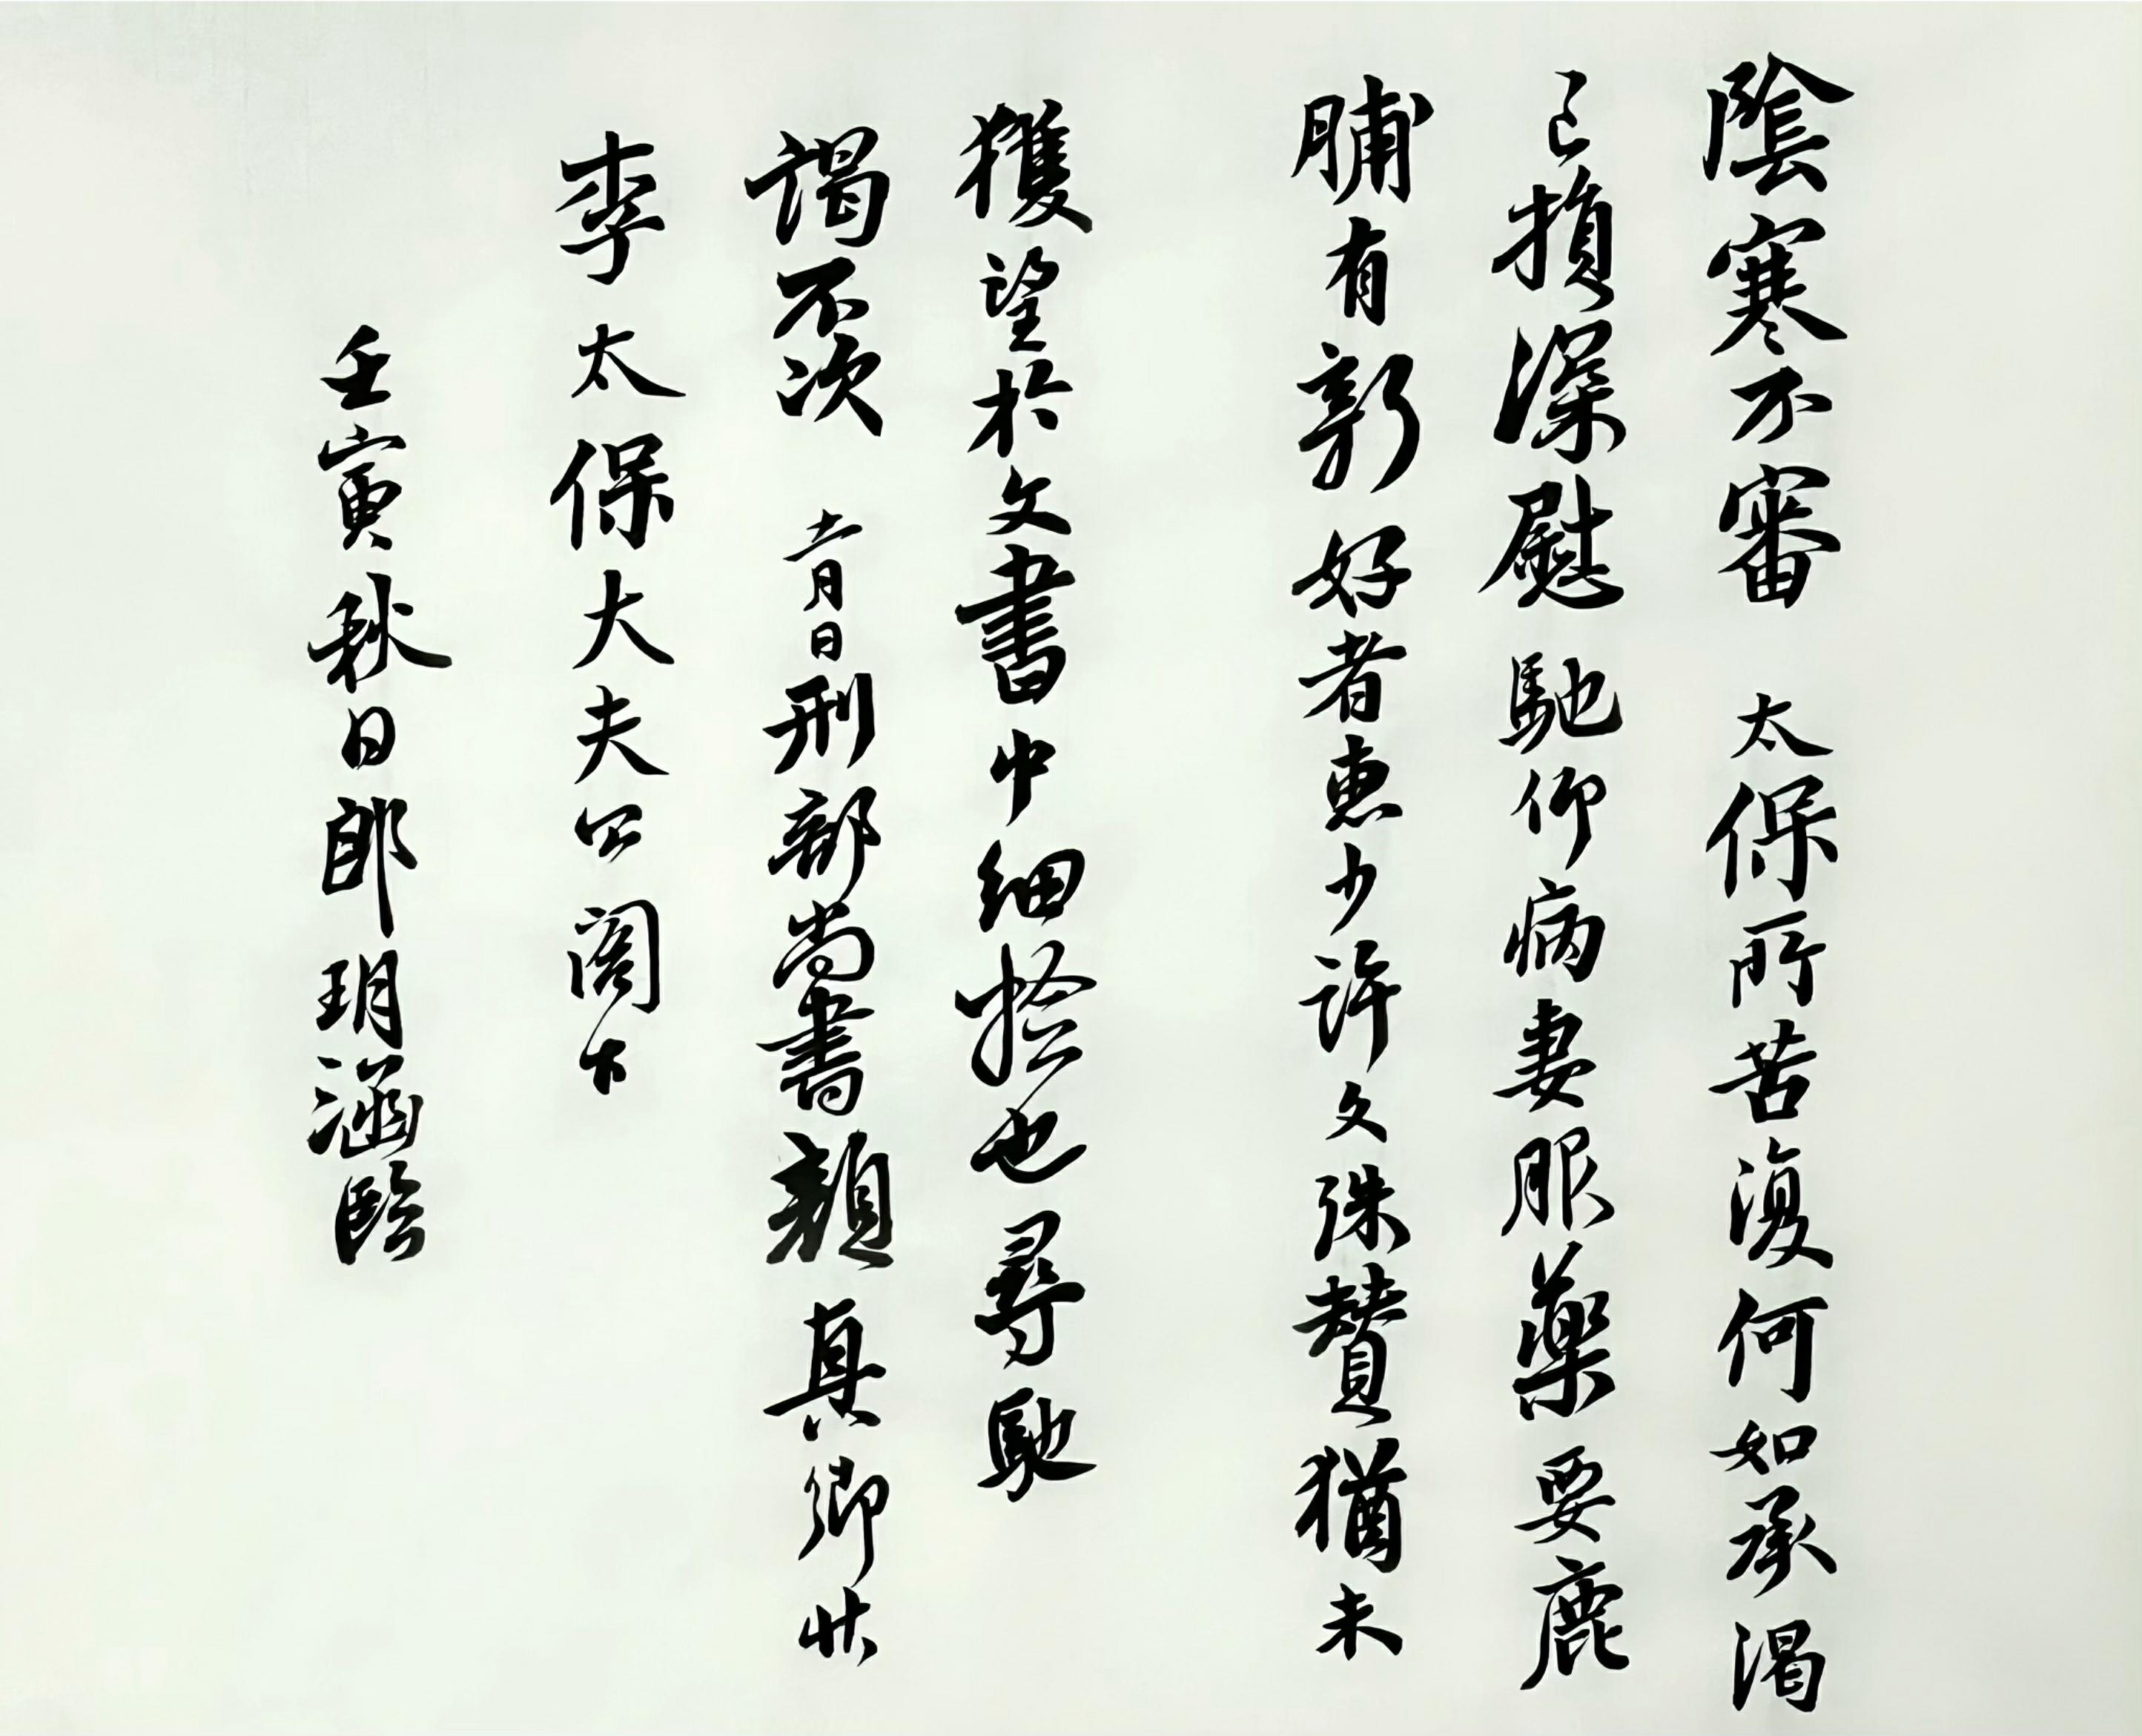 陰寒不審太保所苦復何如承渴
已損深慰馳仰病妻服藥要鹿
脯有新好者惠少許文殊賛猶未
獲望於文書中細撿也尋馳
謁不次十一月日刑部尚書顏真卿狀
李太保大夫公閤下
壬寅秋日郎玥涵臨